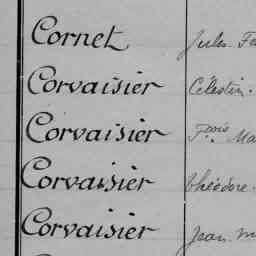 Cornet Jules
Corvaisier Célestin.
Corvaisier Fçois Ma
Corvaisier théodore.
Corvaisier Jean. M